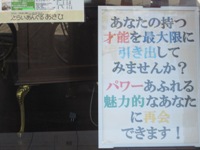 とらいあんぐるあさひ
あなたの持つ
才能を最大限に
引き出して
みませんか？
パワーあふれる
魅力的なあなた
に再会
できます！